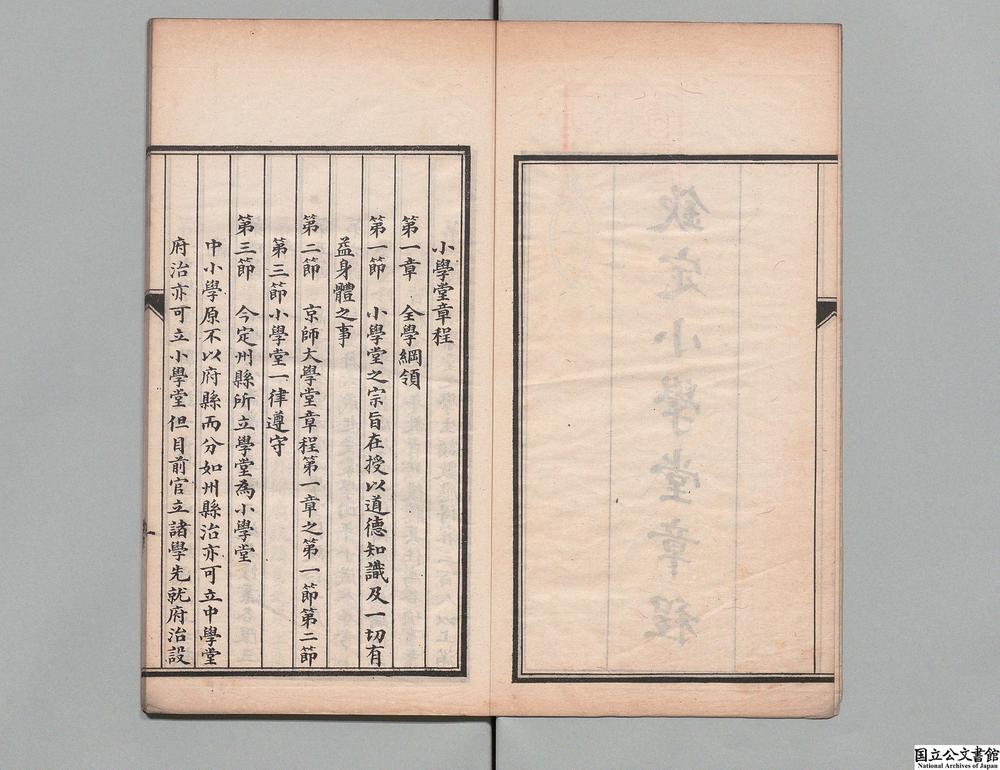 欽定小學堂章程
小學堂章程
第一章 全學綱領
第一節 小學堂之宗旨在授以道德知識及一切有
益身體之事
第二節 京師大學堂章程第一章之第一節第二節
第三節小學堂一律遵守
第三節 今定州縣所立學堂為小學堂
中小學原不以府縣而分如州縣治亦可立中學堂
府治亦可立小學堂但目前官立諸學先就府治設
国立公文書館
National Archives of Japan